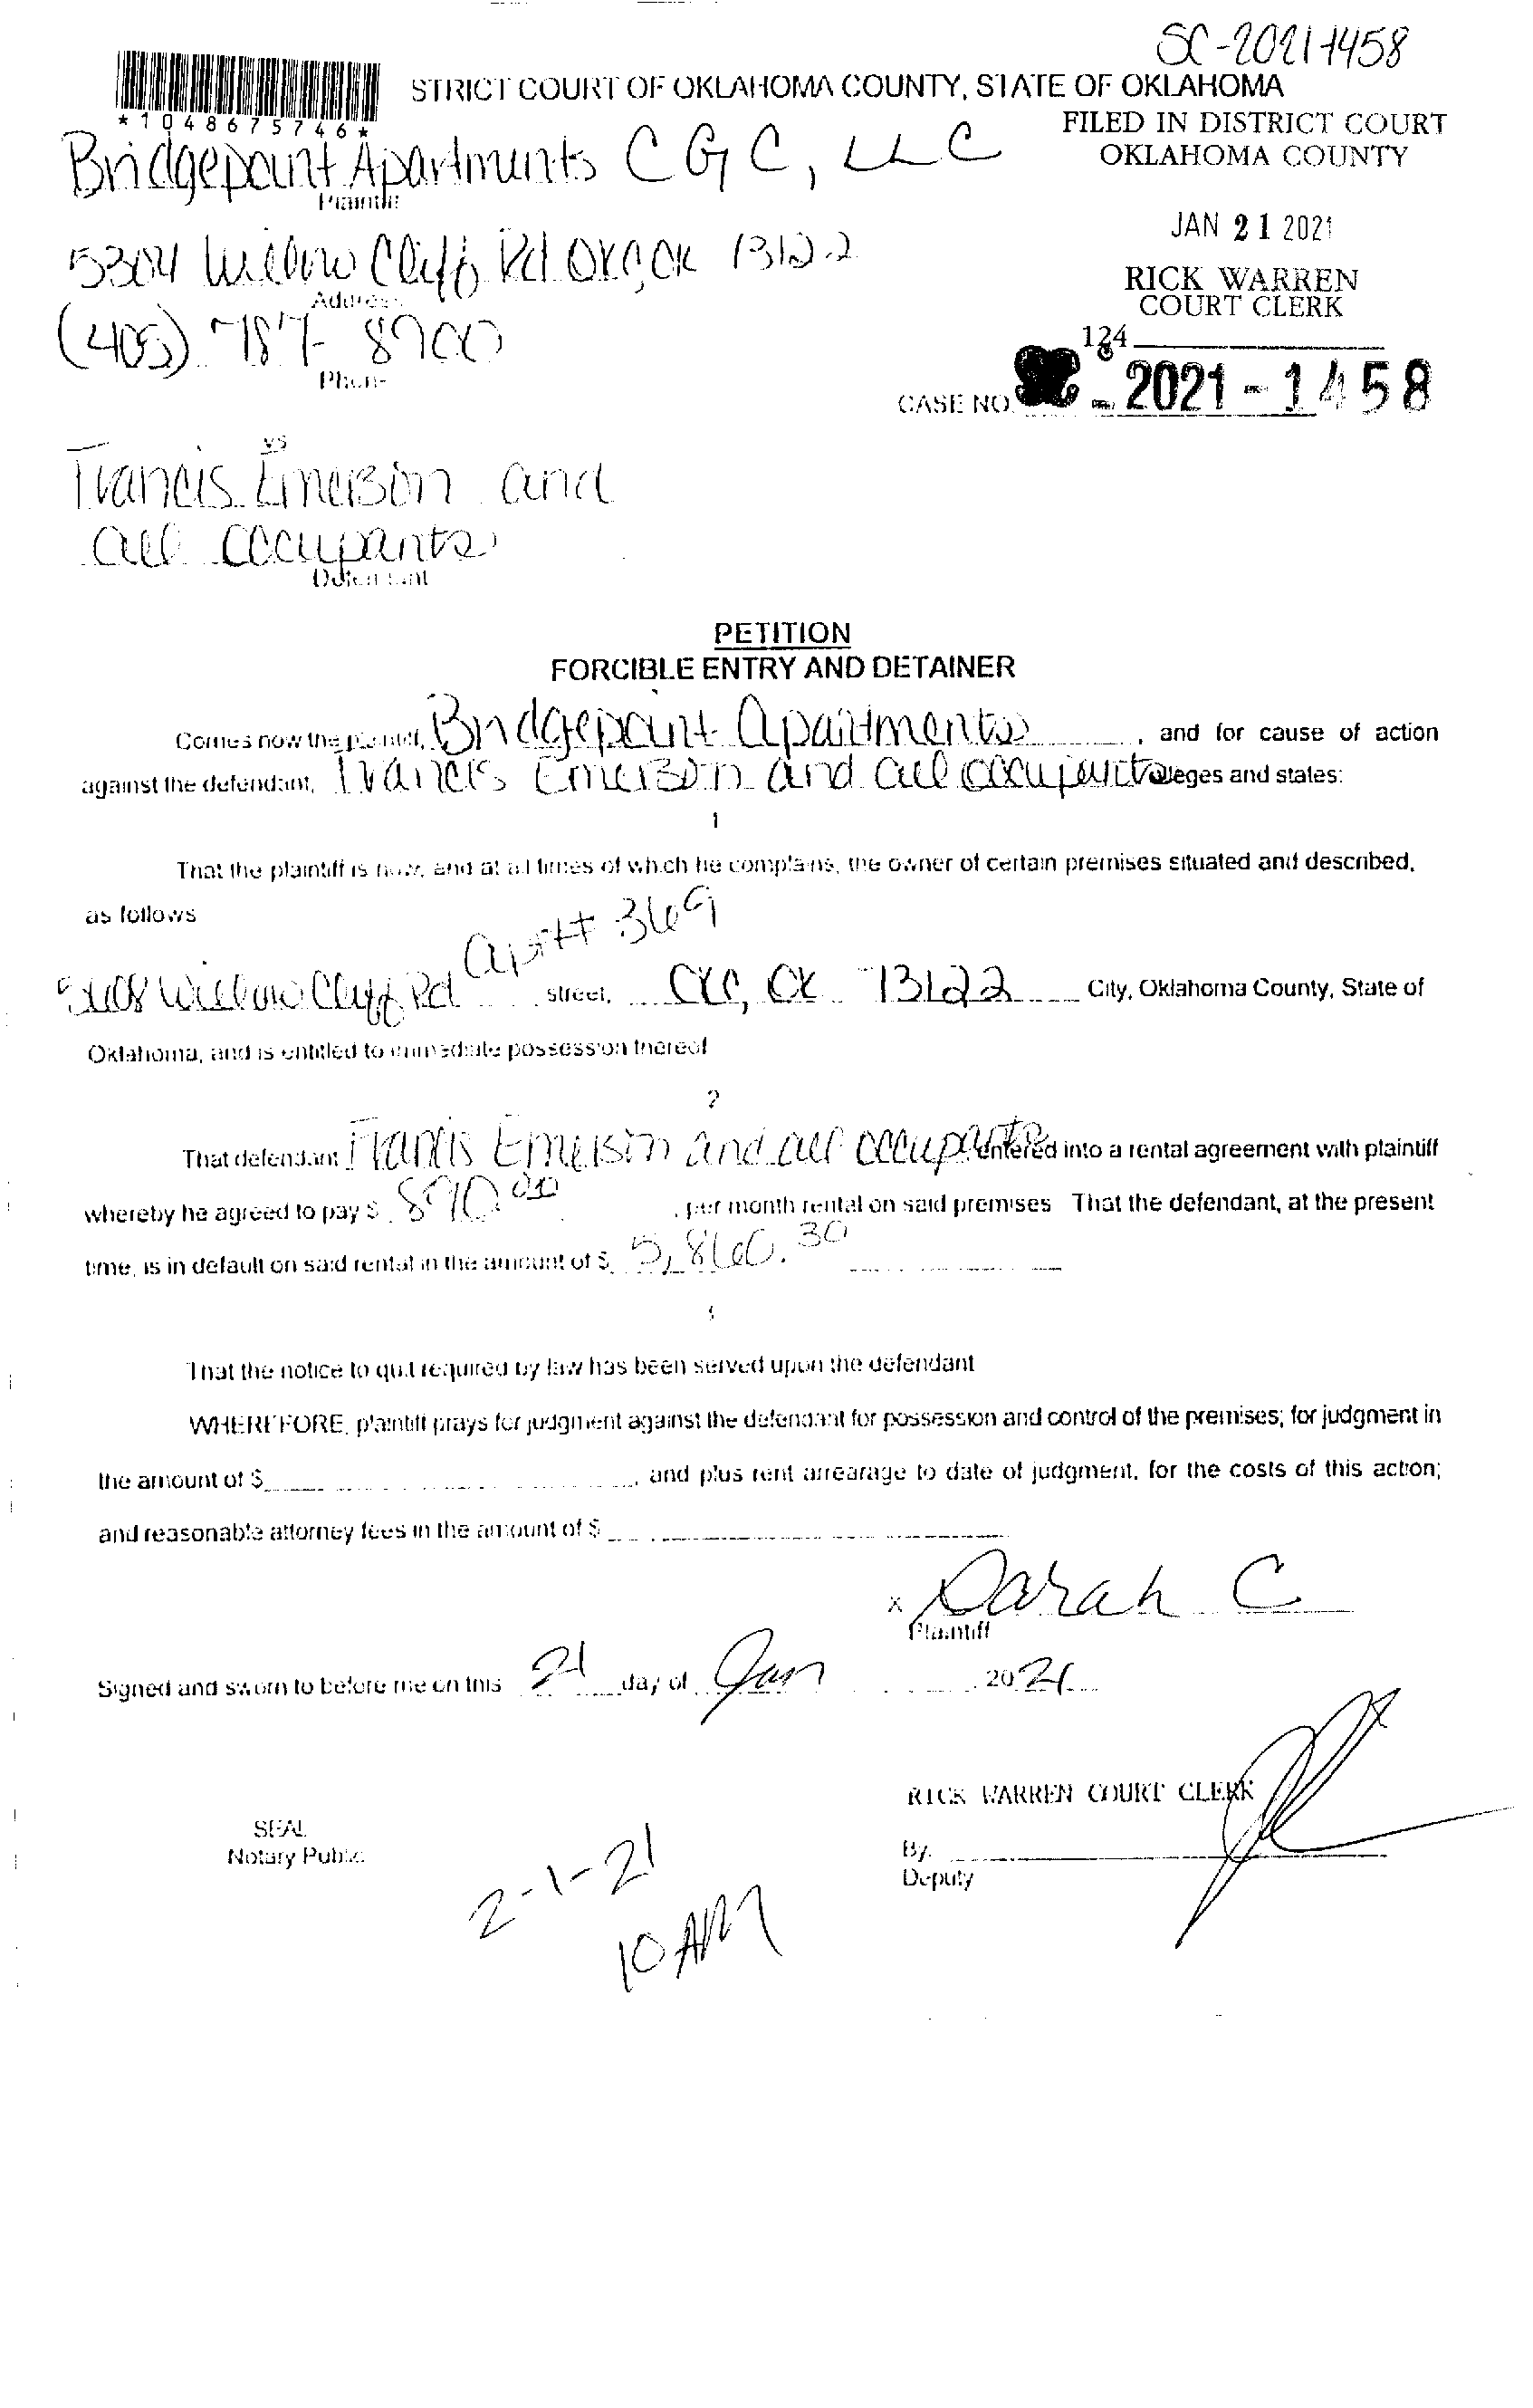 SC-2021-1458
STRICT COURT OF OKLAHOMA COUNTY, STATE OF OKLAHOMA
*1048675746*
FILED IN DISTRICT COURT
OKLAHOMA COUNTY
Bridgepoint Apartments CGC, LLC
Plaintiff
JAN 21 2021
5304 Willow Cliff Rd OKC, OK 73122
Address
RICK WARREN
COURT CLERK
(405) 787-8900
Phone
124
CASE NO. 2021-1458
vs
Francis Emerson and
all occupants
Defendant
PETITION
FORCIBLE ENTRY AND DETAINER
Comes now the plaintiff, Bridgepoint Apartments, and for cause of action
against the defendant, Francis Emerson and all occupants alleges and states:
1
That the plaintiff is now, and at all times of which he complains, the owner of certain premises situated and described,
as follows
apt# 369
Willow Cliff Rd street, OKC, OK 73122 City, Oklahoma County, State of
Oklahoma, and is entitled to immediate possession thereof
2
That defendant Francis Emerson and all occupants entered into a rental agreement with plaintiff
whereby he agreed to pay $ 890.00, per month rental on said premises That the defendant, at the present
time, is in default on said rental in the amount of $ 5,860.30
That the notice to quit required by law has been served upon the defendant
WHEREFORE, plaintiff prays for judgment against the defendant for possession and control of the premises; for judgment in
the amount of $ , and plus rent arrearage to date of judgment, for the costs of this action;
and reasonable attorney fees in the amount of $
x Sarah C
Plaintiff
Signed and sworn to before me on this 21 day of Jan 2021
RICK WARREN COURT CLERK
SEAL
Notary Public
By.
Deputy
2-1-21
10 AM